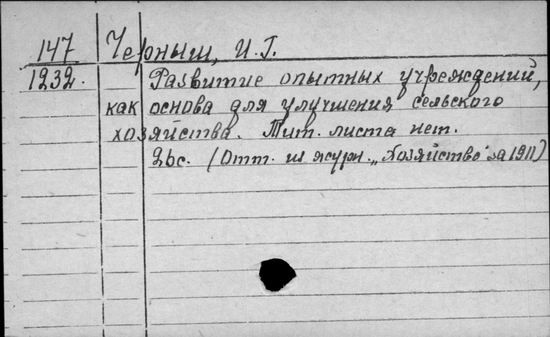 147 Черныш, И.Г.
1232. Развитие опытных учреждений,
как основа для улучшения сельского
хозяйства. Тит. листа нет.
26с. (Отт. из журн. „Хозяйство" за 1911)